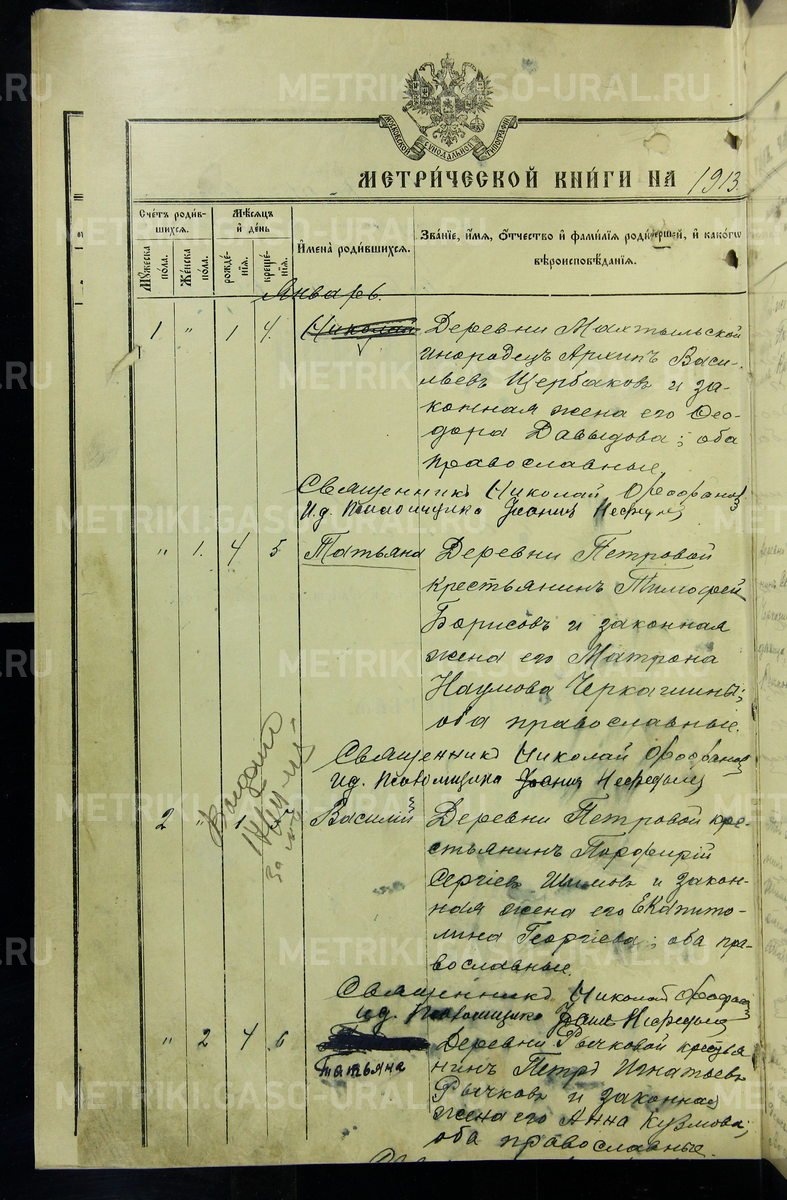 МОСКОВСКОЙ СѴНОДАЛЬНОЙ ТИПОГРАФІИ
МЕТРИ́ЧЕСКОЙ КНИ́ГИ НА 1913
Сче́тъ роди́в-
шихся.
Мѣ́сяцъ
и҆ де́нь
Мꙋ́жеска
по́ла.
Же́нска
по́ла.
рожде́-
нїѧ.
креще́-
нїѧ.
И҆мена̀ роди́вшихсѧ.
Зва́нїе, и҆́мѧ, ѻ҆́тчество и҆ фами́лїѧ роди́телей, и҆ како́гѡ
вѣроисповѣ́данїѧ.
Январь.
1 " 1 4. Николай Деревни Махтыльской
инородецъ Архипъ Васи-
льевъ Щербаковъ и за-
конная жена его Ѳео-
дора Давыдова; оба
православные
Священникъ Николай
И.д. Псаломщика Іоаннъ
" 1. 4 5 Татьяна Деревни Петровой
крестьянинъ Тимофей
Борисовъ и законная
жена его Матрона
Наумова Черкашины;
оба православные.
Священникъ Николай
И.д. Псаломщика Іоаннъ
2 " Василій Деревни Петровой кре-
стьянинъ Порфирій
Сергіевъ и закон-
ная жена его Екапито-
лина Георгіева; оба пра-
вославные.
Священникъ Николай
И.д. Псаломщика Іоаннъ
" 2 4 6 Татьяна Деревни Рычковой крестья
нинъ Петръ Игнатьевъ
Рычковъ и законная
жена его Анна Кузмова;
оба православные.
METRIKI.GASO-URAL.RU